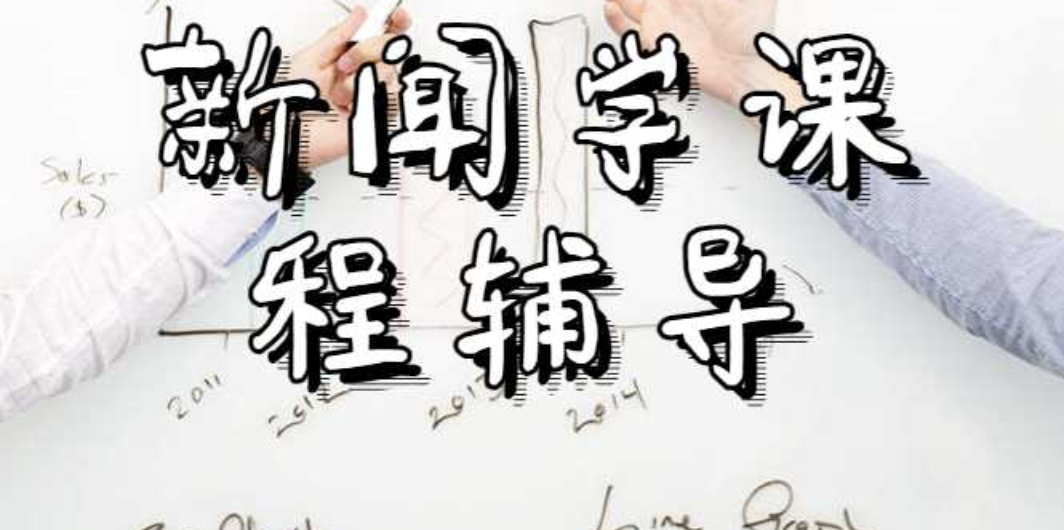 新闻学课
程辅导
Sales
($)
2011
2012
2013
2014
Line Graph